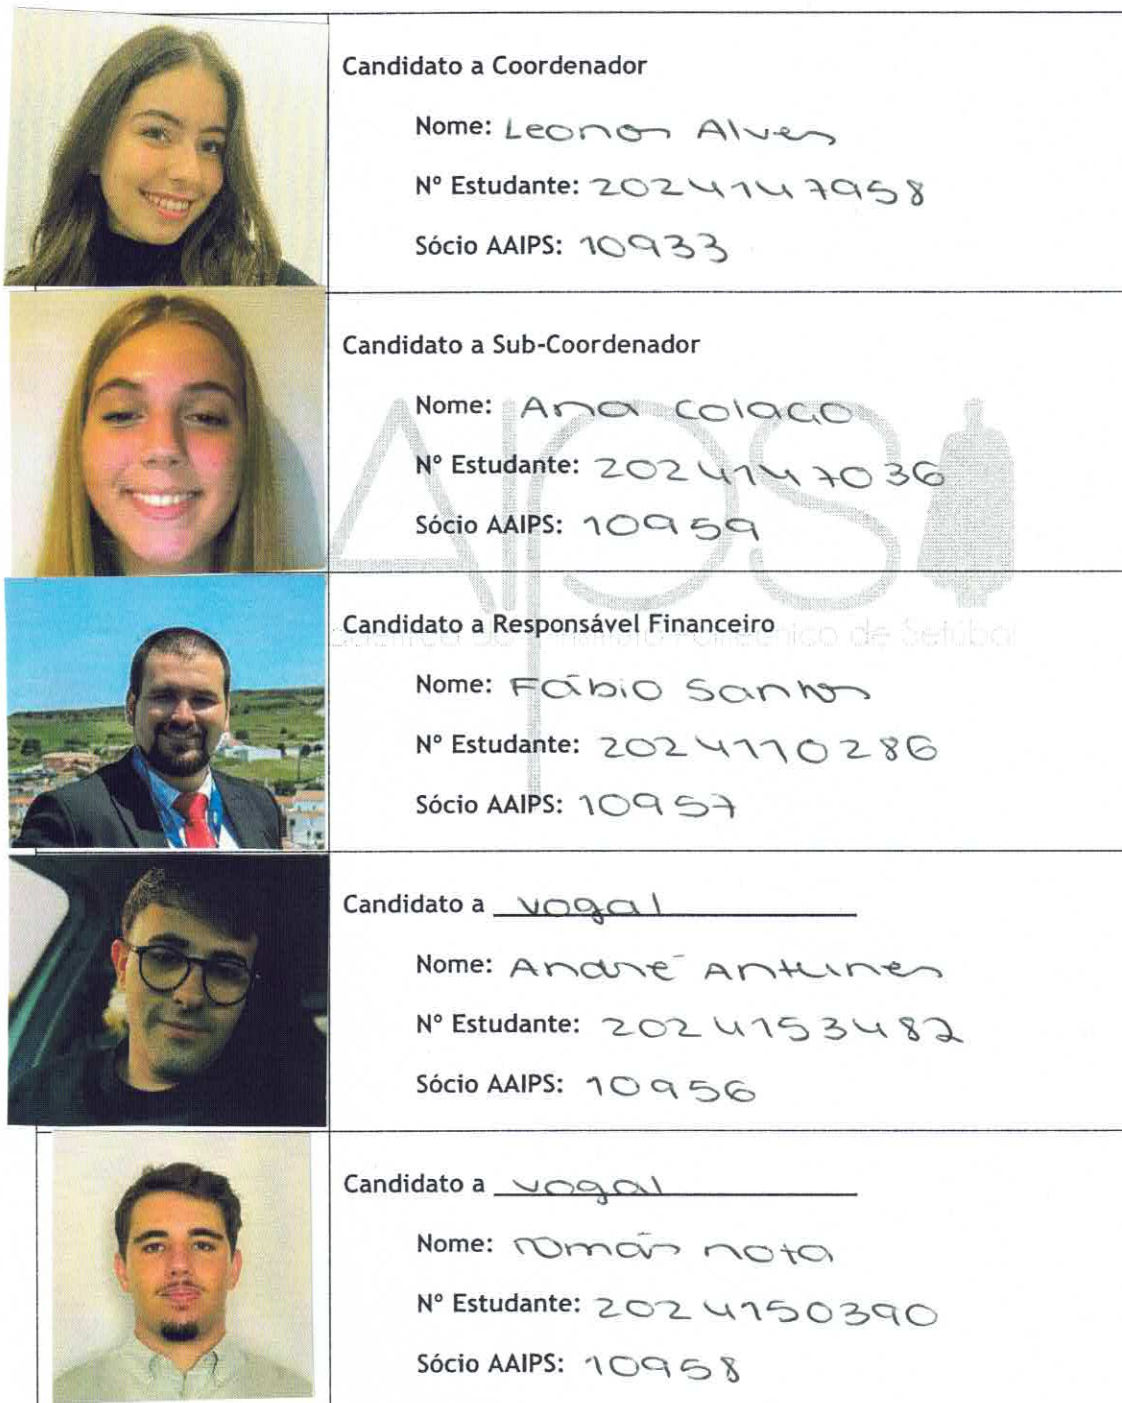 Candidato a Coordenador
Nome: Leonor Alves
Nº Estudante: 2024147958
Sócio AAIPS: 10933
Candidato a Sub-Coordenador
Nome: Ana Colaço
Nº Estudante: 2024147036
Sócio AAIPS: 10959
AIPS
Candidato a Responsável Financeiro
Instituto Politécnico de Setúbal
Nome: Fábio Santos
Nº Estudante: 2024110286
Sócio AAIPS: 10957
Candidato a vogal
Nome: André Antunes
Nº Estudante: 2024153482
Sócio AAIPS: 10956
Candidato a vogal
Nome: nota
Nº Estudante: 2024150390
Sócio AAIPS: 10958